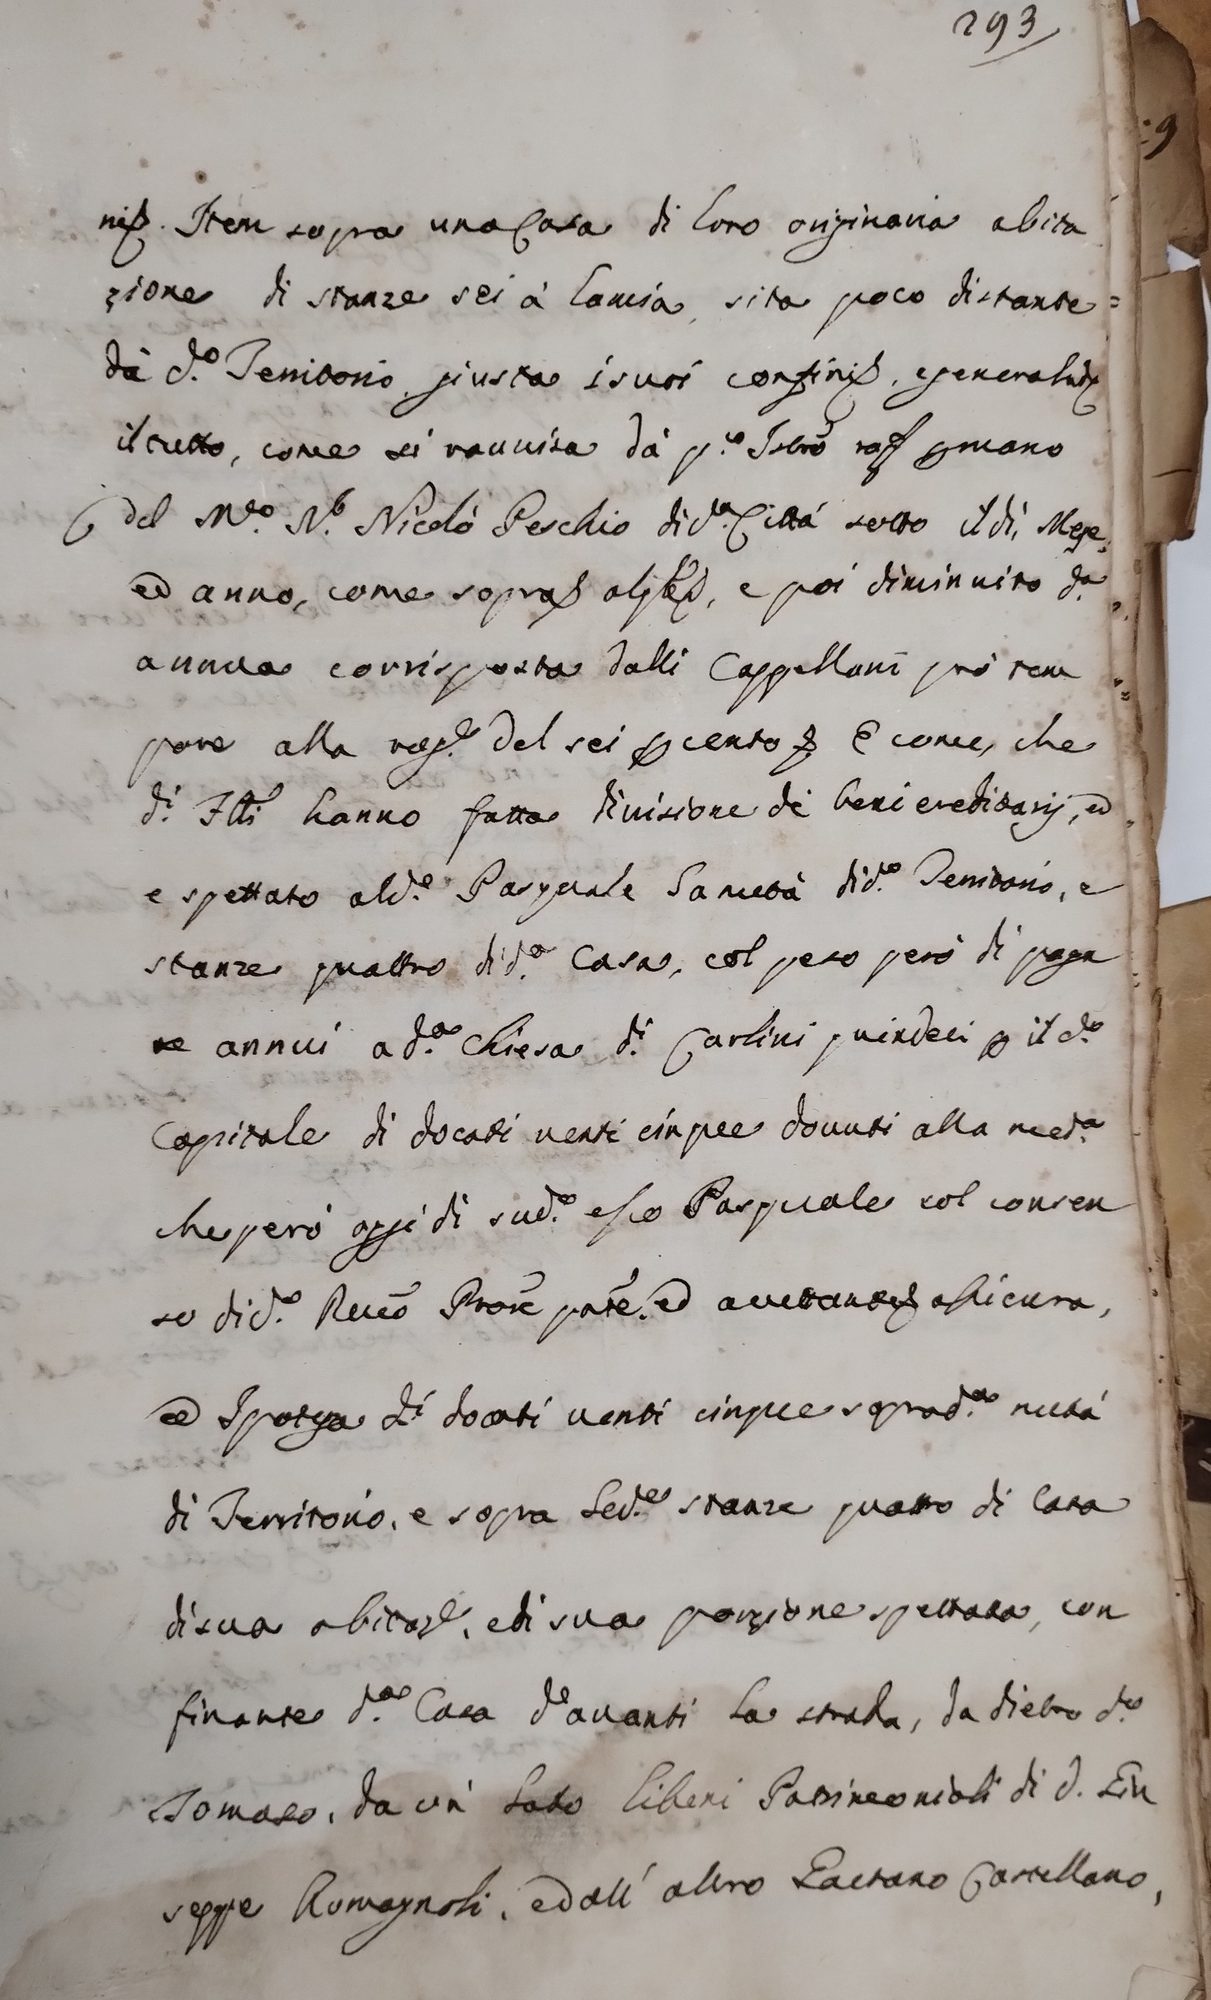 293
nis. Item sopra una Casa di loro originaria abita
zione di stanze sei à lamia, sita poco distante
dà d.o Territorio giusta i suoi confini, e generalm
il tutto, come si ravvisa dà p.o Istro p mano
del M.co N.r Nicolò Peschio di d.a Città sotto il dì, Mese,
ed anno, come sopra, e poi diminuito d.a
annua corrisposta dalli Cappellani prò tem
pore alla rag.e del sei p cento E come, che
d.i Flli hanno fatta divisione de beni ereditarij, ed
e spettato al d.o Pasquale la metà di d.o Territorio, e
stanze quattro di d.a Casa, col peso però di paga
re annui a d.a Chiesa di Carlini quindeci p il d.o
Capitale di docati venti cinque dovuti alla med.a
che però oggi dì sud.o esso Pasquale col consen
so di d.o Revdo Prore pnte, ed accettante assicura,
ed Ipoteca d.i docati venti cinque soprad.a metà
di Territorio, e sopra le d.e stanze quattro di Casa
di sua abitaz.e, e di sua porzione spettata, con
finante d.a Casa d'avanti la strada, da dietro d.o
Tomaso, da un lato li beni Patrimoniali di D. Giu
seppe Romagnoli, ed all' altro Gaetano Castellano,